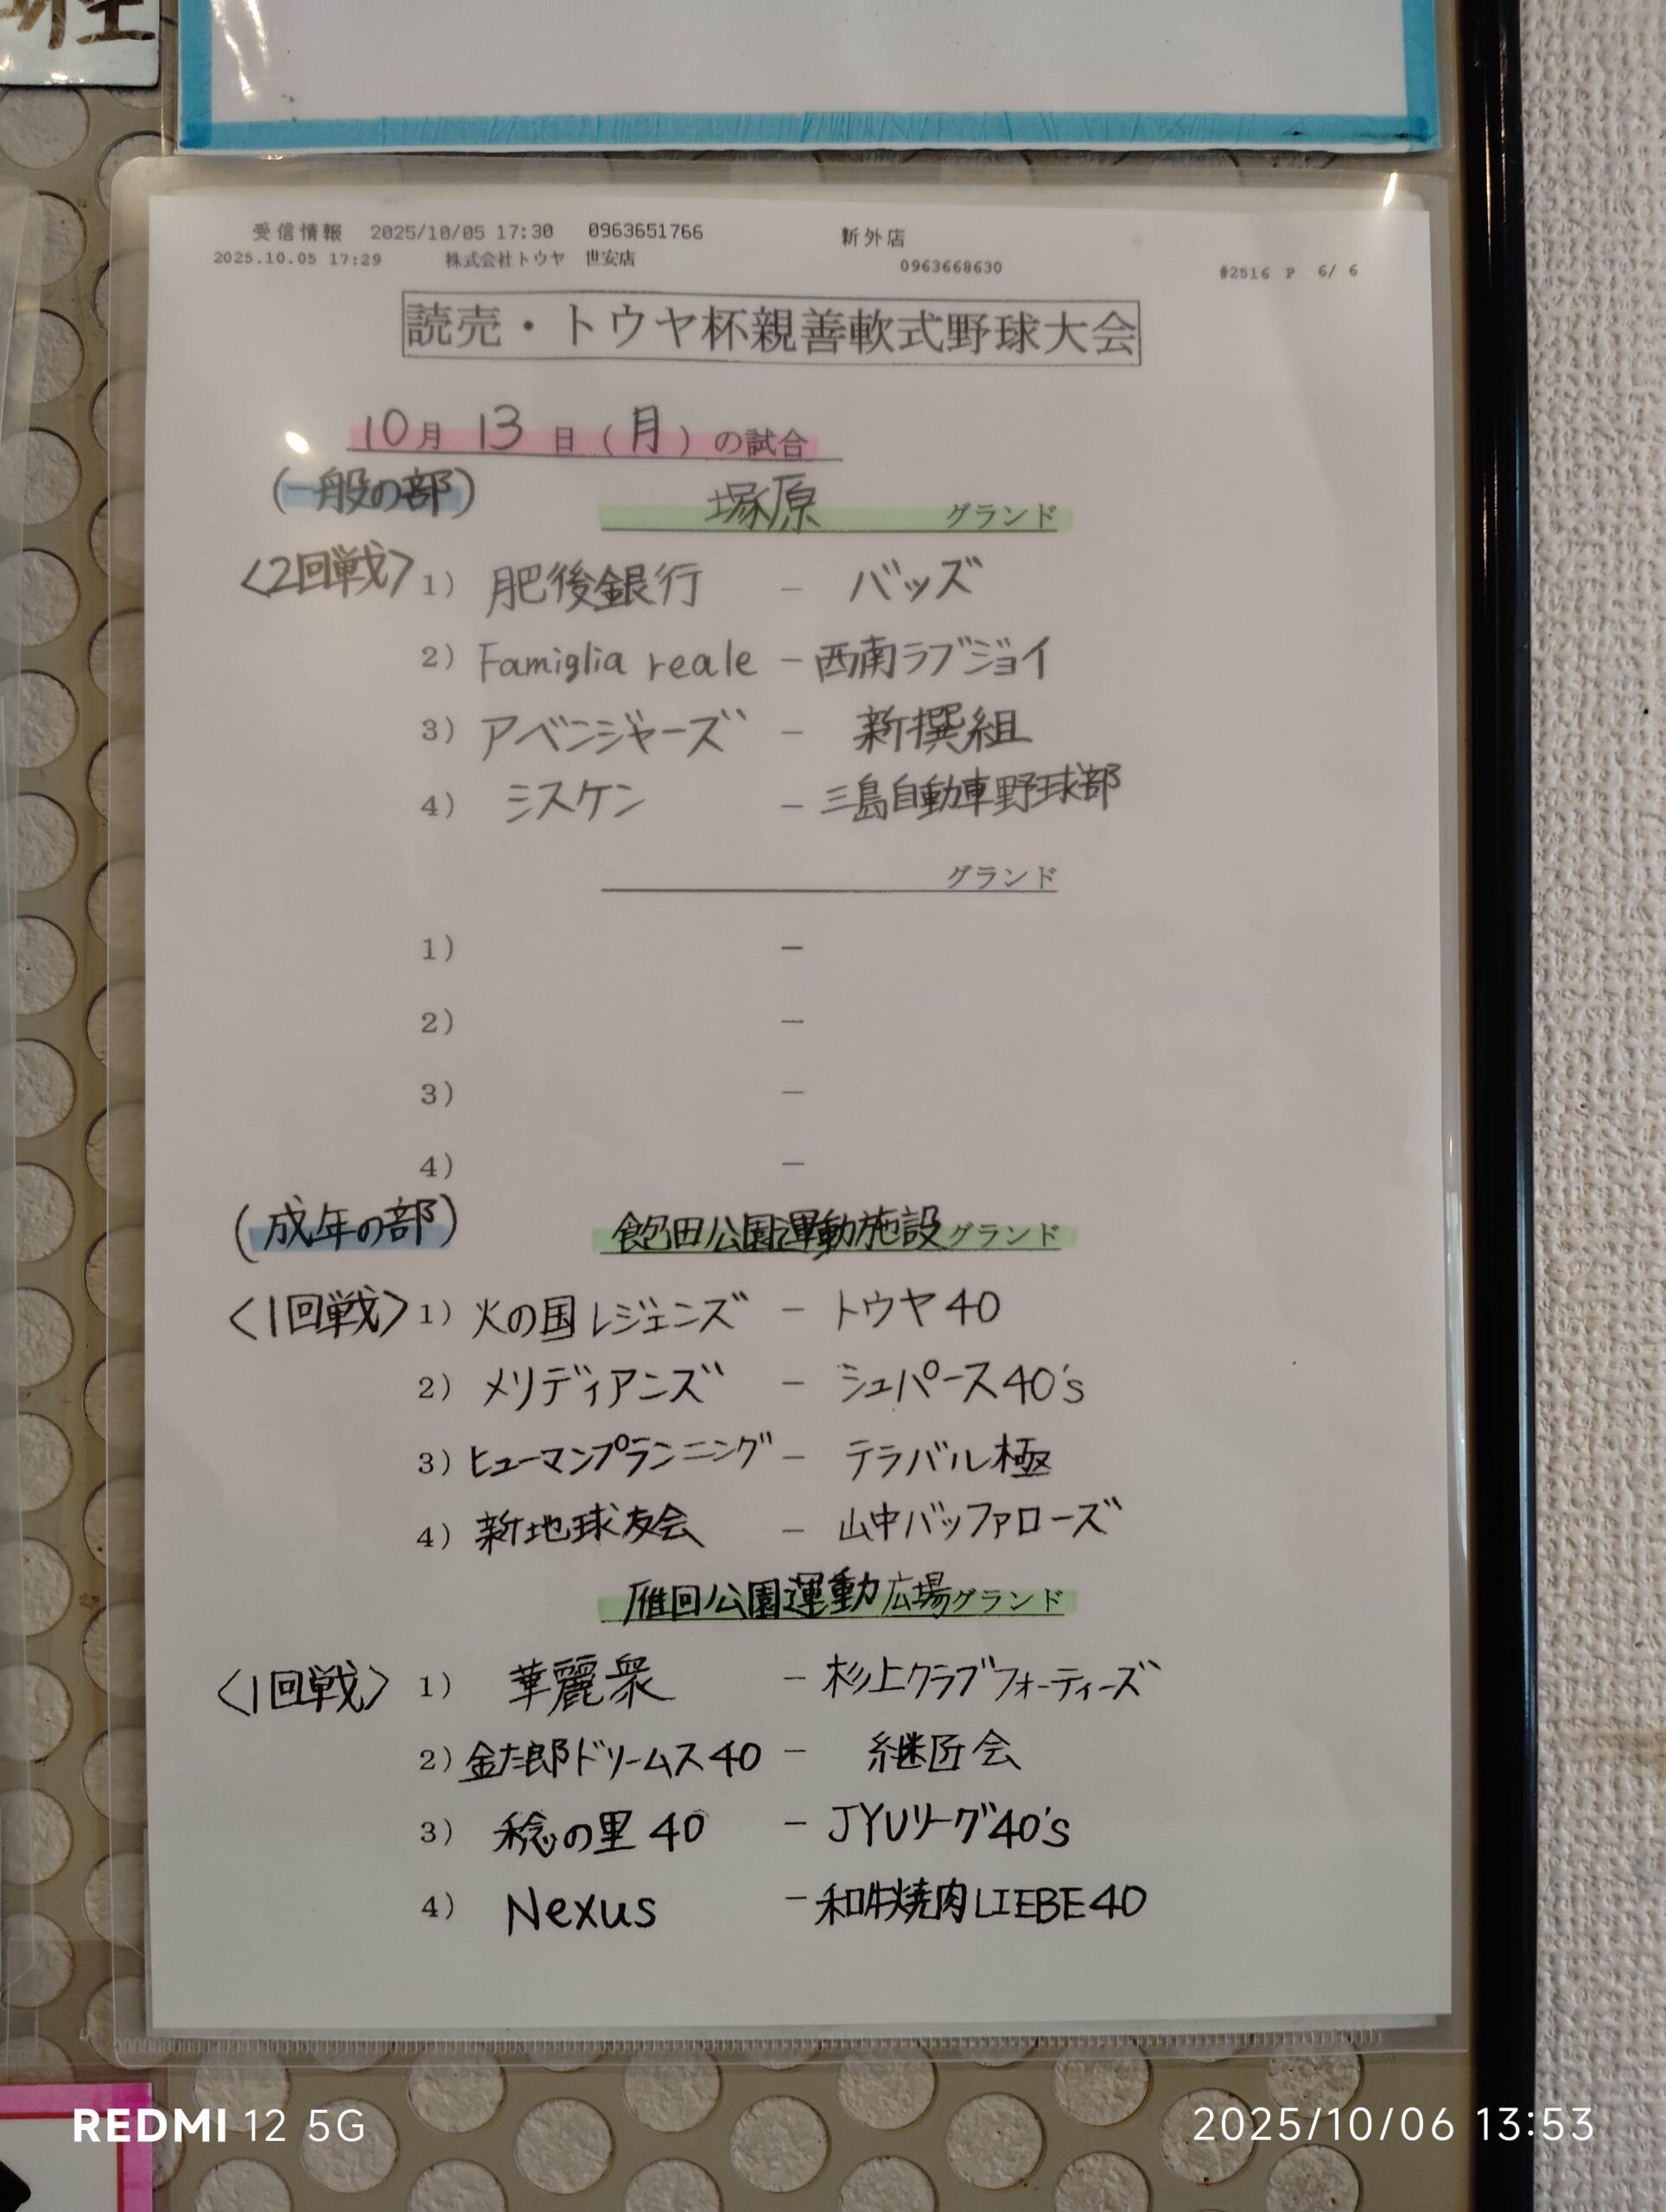 受信情報 2025/10/05 17:30 0963651766 新外店
2025.10.05 17:29 株式会社トウヤ 世安店 0963668630 #2516 P 6/ 6
読売・トウヤ杯親善軟式野球大会
10月 13 日(月)の試合
(一般の部) 塚原 グランド
<2回戦> 1) 肥後銀行 - バッズ
2) Famiglia reale - 西南ラブジョイ
3) アベンジャーズ - 新撰組
4) ミスケン - 三島自動車野球部
グランド
1) -
2) -
3) -
4) -
(成年の部) 飽田公園運動施設グランド
<1回戦> 1) 火の国レジェンズ - トウヤ40
2) メリディアンズ - シュパース40's
3) ヒューマンプランニング - テラバル極
4) 新地球友会 - 山中バッファローズ
雁回公園運動広場グランド
<1回戦> 1) 華麗衆 - 杉上クラブフォーティーズ
2) 金太郎ドリームス40 - 継匠会
3) 稔の里40 - JYUリーグ40's
4) Nexus - 和牛焼肉LIEBE40
REDMI 12 5G 2025/10/06 13:53